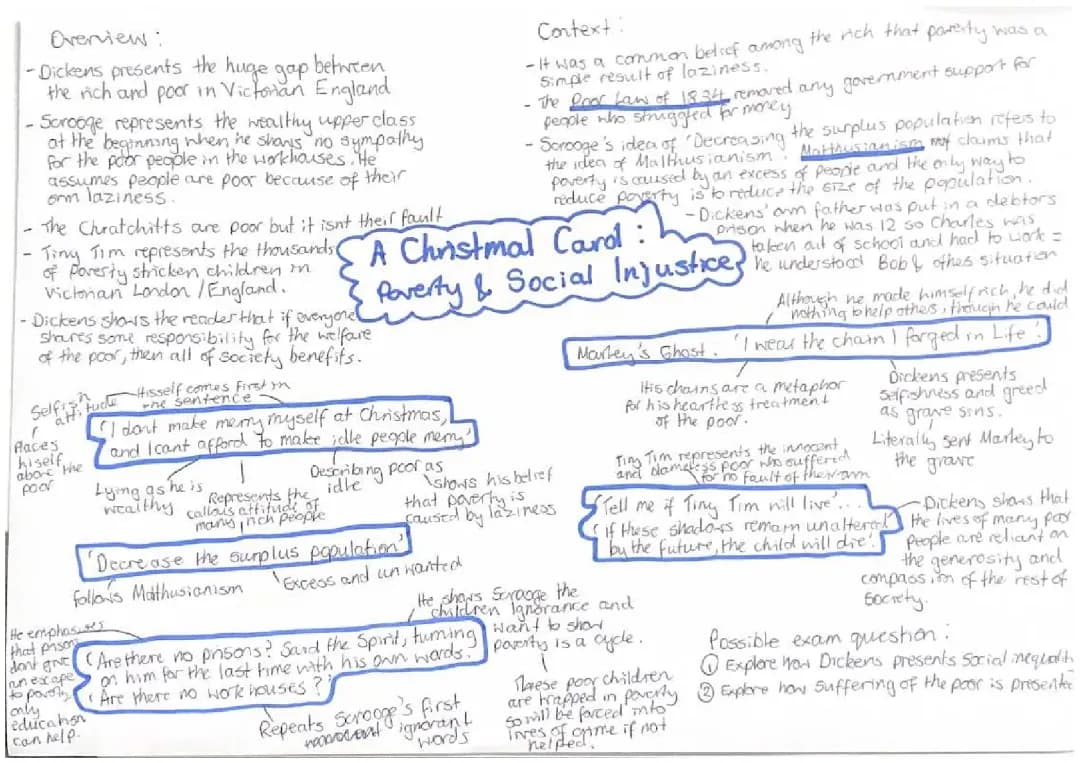 Overview :
- Dickens presents the huge gap between
the rich and poor in Victorian England
- Scrooge represents the wealthy upper class
at the beginning when he shows no sympathy
for the poor people in the workhouses. He
assumes people are poor because of their
own laziness.
- The Chratchitts are poor but it isnt their fault
- Tiny Tim represents the thousands
of poverty stricken children in
Victorian London / England.
- Dickens shows the reader that if everyone
shares some responsibility for the welfare
of the poor, then all of society benefits.
Context :
- It was a common belief among the rich that poverty was a
simple result of laziness.
- The Poor Law of 1834 removed any government support for
people who struggled for money
- Scrooge's idea of 'Decreasing the surplus population refers to
the idea of Malthusianism. Malthusianism claims that
poverty is caused by an excess of people and the only way to
reduce poverty is to reduce the size of the population.
- Dickens' own father was put in a debtors
prison when he was 12 so Charles was
taken out of school and had to work =
he understood Bob & othes situation
A Christmal Carol :
Poverty & Social Injustice
Although he made himself rich, he did
nothing to help others, though he could
Marley's Ghost. 'I wear the chain I forged in Life'.
His chains are a metaphor
for his heartless treatment
of the poor.
Dickens presents
selfishness and greed
as grave sins.
Literally sent Marley to
the grave
Selfish
attitude
Hisself comes first in
the sentence
Places
hiself
above the
poor
'I dont make merry myself at Christmas,
and I cant afford to make idle people merry'
Lying as he is
wealthy
Represents the
callous attitude of
many rich people
Describing poor as
idle
shows his belief
that poverty is
caused by laziness
'Decrease the surplus population'
follows Malthusianism
Excess and unwanted
Tiny Tim represents the innocent
and blameless poor who suffered
for no fault of their own
'Tell me if Tiny Tim will live'...
'If these shadows remain unaltered
by the future, the child will die'.
Dickens shows that
the lives of many poor
people are reliant on
the generosity and
compassion of the rest of
society.
He emphasises
that prisons
dont give
an escape
to poverty,
only
education
can help.
'Are there no prisons? Said the Spirit, turning
on him for the last time with his own words.
'Are there no workhouses?'
Repeats Scrooge's first
ignorant
words
He shows Scrooge the
children Ignorance and
want to show
poverty is a cycle.
These poor children
are trapped in poverty
so will be forced into
lives of crime if not
helped.
Possible exam question :
① Explore how Dickens presents Social inequalit
② Explore how suffering of the poor is presente